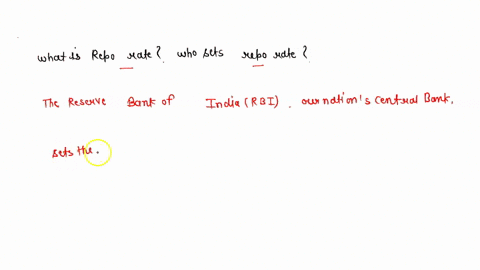 what is Repo rate? who sets repo rate?
The Reserve Bank of India (RBI), our nation's central Bank,
sets the.